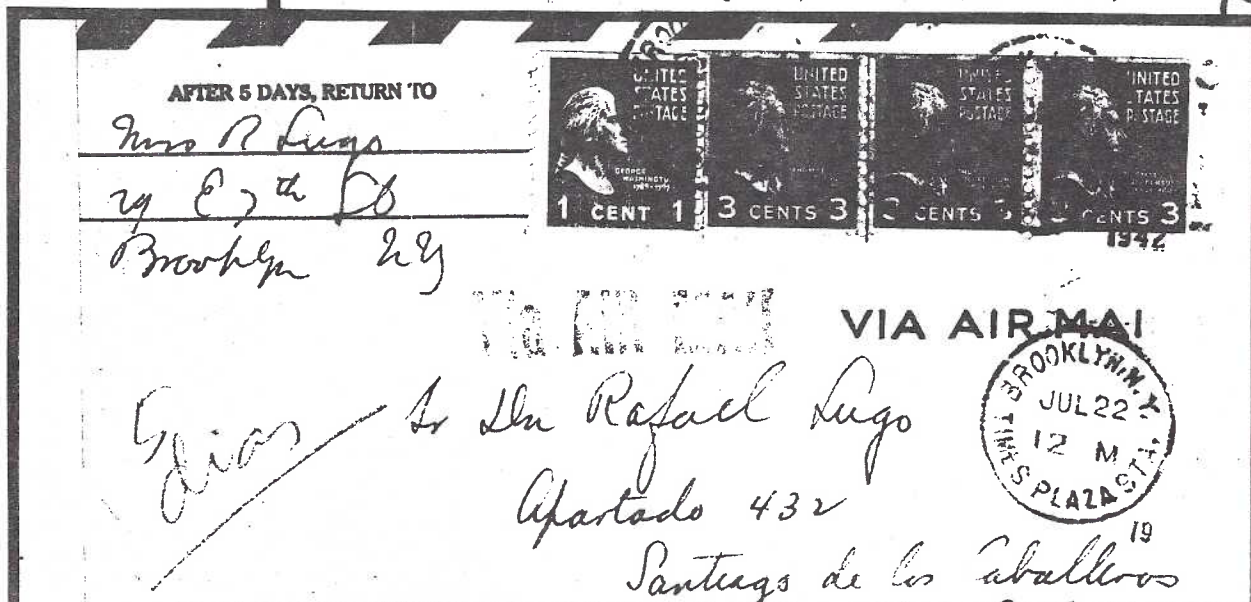 AFTER 5 DAYS, RETURN TO
Mrs R Lugo
29 E 7th St
Brooklyn NY
UNITED STATES POSTAGE
GEORGE WASHINGTON
1789-1797
1 CENT 1
UNITED STATES POSTAGE
3 CENTS 3
UNITED STATES POSTAGE
3 CENTS 3
UNITED STATES POSTAGE
3 CENTS 3
1942
Via AIR MAIL
VIA AIR MAI
BROOKLYN, N.Y.
JUL 22
12 M
TIMES PLAZA STA.
19
Sr Dn Rafael Lugo
Apartado 432
Santiago de los Caballeros